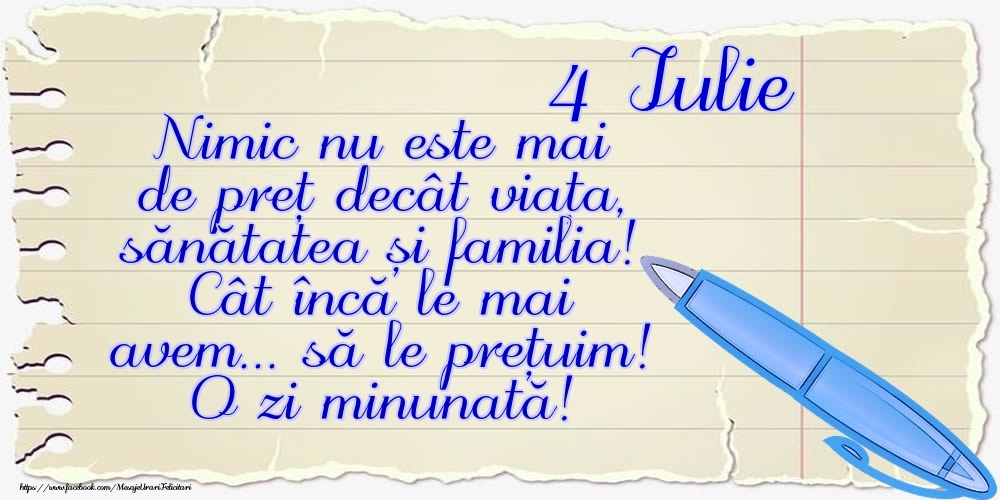 4 Iulie
Nimic nu este mai
de preț decât viața,
sănătatea și familia!
Cât încă le mai
avem... să le prețuim!
O zi minunată!
https://www.facebook.com/MesajeUrariFelicitari